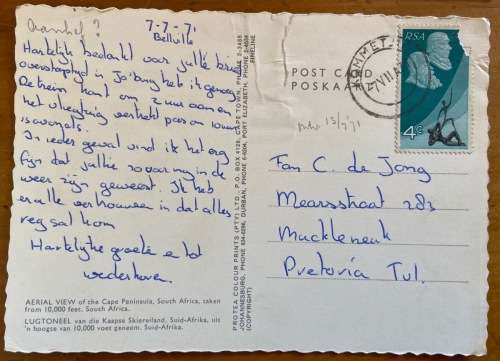 Aanhef?
7-7-71
Bellville
Hartelijk bedankt voor jullie brief
overstapte in Jo'burg heb ik genoeg
De trein kant om 2 uur aan en
het vliegtuig vertrekt pas om 10 uur
's avonds.
In ieder geval vind ik het erg
fijn dat jullie zo aardig in de
weer zijn geweest. Ik heb
er alle vertrouwen in dat alles
reg sal kom
Hartelijke groete en tot
wederhoren.
AERIAL VIEW of the Cape Peninsula, South Africa, taken
from 10,000 feet. South Africa.
LUGTONEEL van die Kaapse Skiereiland, Suid-Afrika, uit
'n hoogte van 10,000 voet geneem. Suid-Afrika.
PROTEA COLOUR PRINTS (PTY) LTD., P.O. BOX 4126, CAPE TOWN, PHONE 2-3485
JOHANNESBURG, PHONE 834-6296, DURBAN, PHONE 6-6504, PORT ELIZABETH, PHONE 2-6504
(COPYRIGHT)
POST CARD
POSKAART
RSA
4c
13/7/71
Fam C. de Jong
Mearsstraat 283
Muckleneuk
Pretoria Tvl.